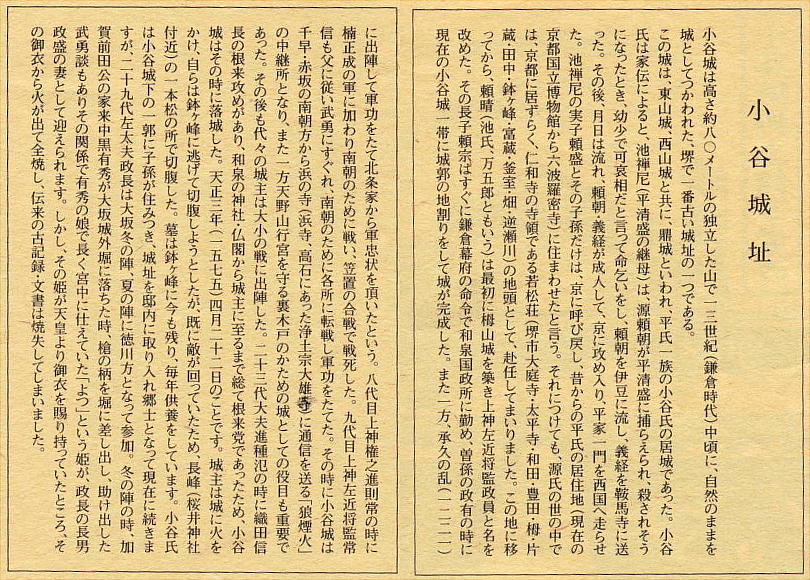 小谷城址
小谷城は高さ約八〇メートルの独立した山で一三世紀（鎌倉時代）中頃に、自然のままを
城としてつかわれた、堺で一番古い城址の一つである。
この城は、東山城、西山城と共に、鼎城といわれ、平氏一族の小谷氏の居城であった。小谷
氏は家伝によると、池禅尼（平清盛の継母）は、源頼朝が平清盛に捕らえられ、殺されそう
になったとき、幼少で可哀相だと言って命乞いをし、頼朝を伊豆に流し、義経を鞍馬寺に送
った。その後、月日は流れ、頼朝・義経が成人して、京に攻め入り、平家一門を西国へ走らせ
た。池禅尼の実子頼盛とその子孫だけは、京に呼び戻し、昔からの平氏の居住地（現在の
京都国立博物館から六波羅密寺）に住まわせたと言う。それにつけても、源氏の世の中で
は、京都に居ずらく、仁和寺の寺領である若松荘（堺市大庭寺・太平寺・和田・豊田・栂・片
蔵・田中・鉢ヶ峰・富蔵・釜室・畑・逆瀬川）の地頭として、赴任してまいりました。この地に移
ってから、頼晴（池氏、万五郎ともいう）は最初に栂山城を築き上神左近将監政員と名を
改めた。その長子頼宗はすぐに鎌倉幕府の命令で和泉国政所に勤め、曽孫の政有の時に
現在の小谷城一帯に城郭の地割りをして城が完成した。また一方、承久の乱（一二二一）
に出陣して軍功をたて北条家から軍忠状を頂いたという。八代目上神権之進則常の時に
楠正成の軍に加わり南朝のために戦い、笠置の合戦で戦死した。九代目上神左近将監常
信も父に従い武勇にすぐれ、南朝のために各所に転戦し軍功をたてた。その時に小谷城は
千早・赤坂の南朝方から浜の寺（浜寺、高石にあった浄土宗大雄寺）に通信を送る「狼煙火」
の中継所となり、また一方天野山行宮を守る裏木戸のかための城としての役目も重要で
あった。その後も代々の城主は大小の戦に出陣した。二十三代大夫進種氾の時に織田信
長の根来攻めがあり、和泉の神社・仏閣から城主に至るまで総て根来党であったため、小谷
城はその時に落城した。天正三年（一五七五）四月二十二日のことです。城主は城に火を
かけ、自らは鉢ヶ峰に逃げて切腹しようとしたが、既に敵が回っていたため、長峰（桜井神社
付近）の一本松の所で切腹した。墓は鉢ヶ峰に今も残り、毎年供養をしています。小谷氏
は小谷城下の一郭に子孫が住みつき、城址を邸内に取り入れ郷士となって現在に続きま
すが、二十九代左太夫政長は大坂冬の陣、夏の陣に徳川方となって参加。冬の陣の時、加
賀前田公の家来中黒有秀が大坂城外堀に落ちた時、槍の柄を堀に差し出し、助け出した
武勇談もありその関係で有秀の娘で長く宮中に仕えていた「よつ」という姫が、政長の長男
政盛の妻として迎えられます。しかし、その姫が天皇より御衣を賜り持っていたところ、そ
の御衣から火が出て全焼し、伝来の古記録・文書は焼失してしまいました。